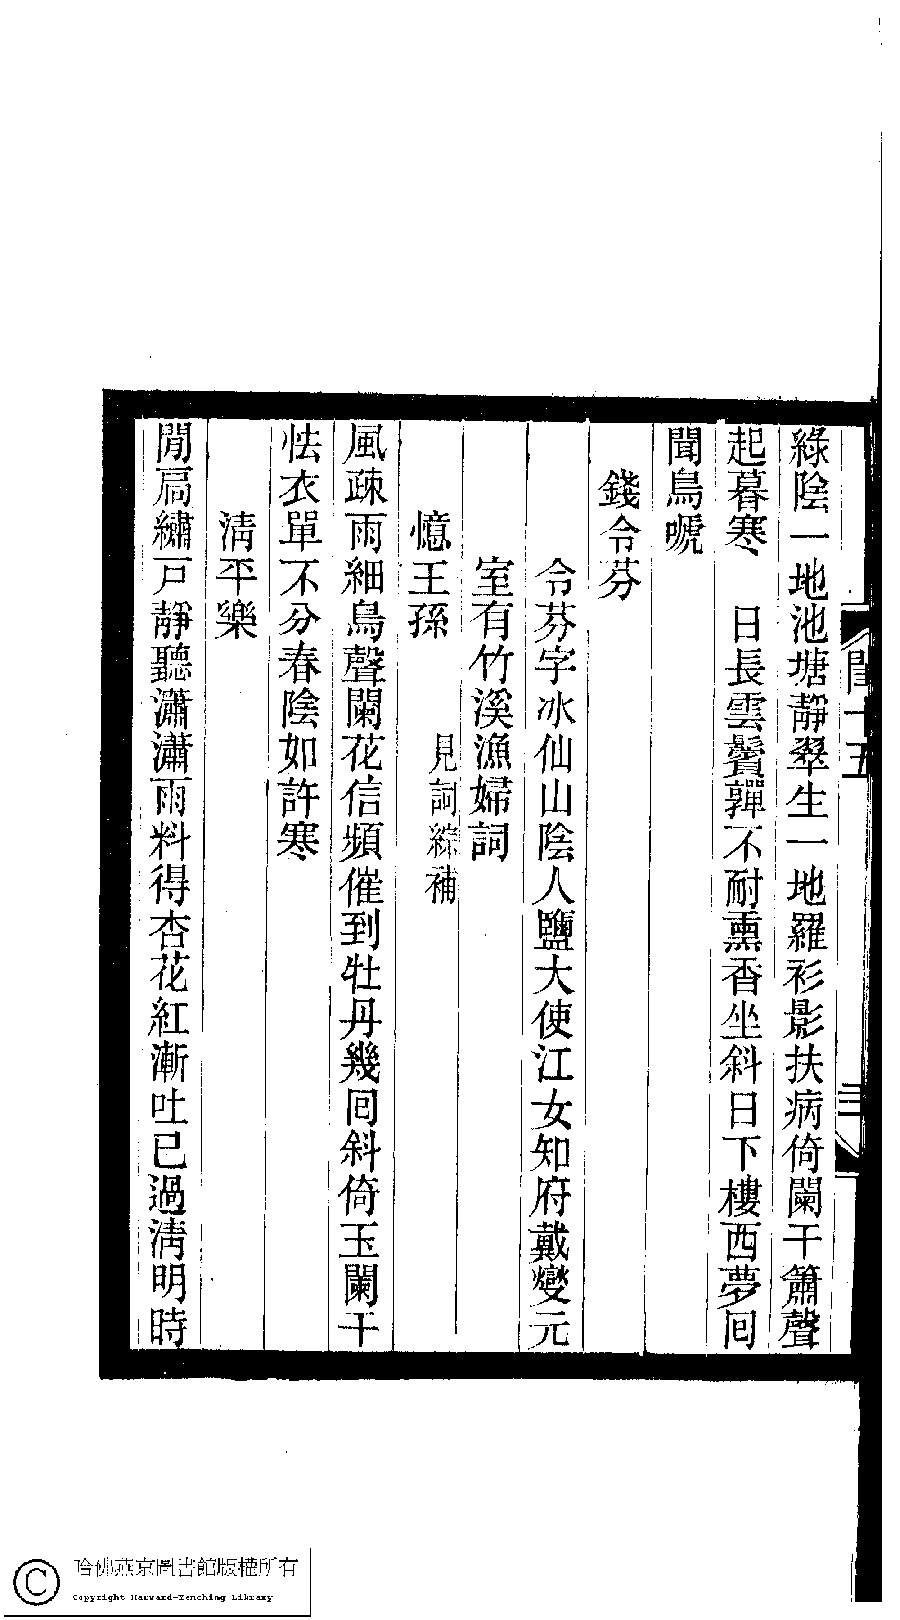 綠陰一地池塘靜翠生一地羅衫影扶病倚闌干簫聲
起暮寒　日長雲鬢嚲不耐熏香坐斜日下樓西夢囘
聞鳥嗁
錢令芬
令芬字冰仙山陰人鹽大使江女知府戴燮元
室有竹溪漁婦詞
憶王孫　見詞綜補
風疎雨細鳥聲闌花信頻催到牡丹幾囘斜倚玉闌干
怯衣單不分春陰如許寒
淸平樂
閒扃繡戸靜聽瀟瀟雨料得杏花紅漸吐已過淸明時
閨十五
三
哈佛燕京圖書館版權所有
Copyright Harvard-Yenching Library